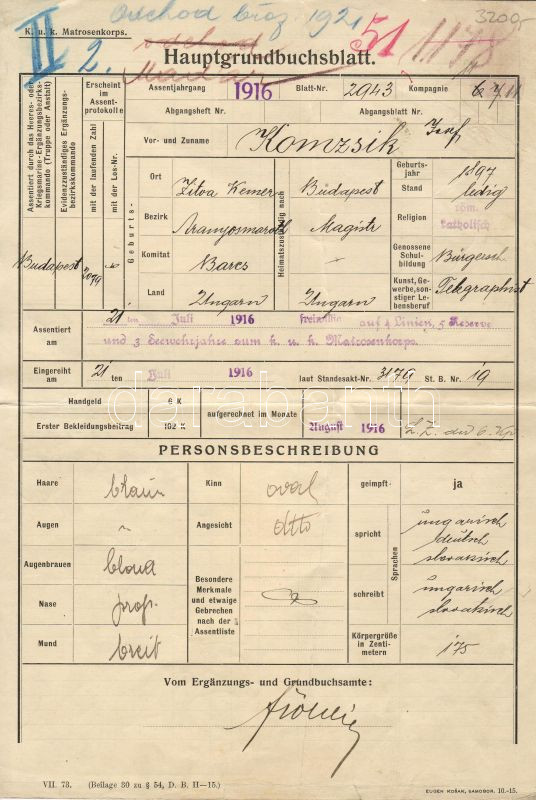 Odchod březen 1921
3200,-
K. u. k. Matrosenkorps.
II 2.
51
Hauptgrundbuchsblatt.
Assentjahrgang 1916 Blatt-Nr. 2943 Kompagnie
Abgangsheft Nr. Abgangsblatt Nr.
Vor- und Zuname Komzsik Josef
Assentiert durch das Heeres- oder Kriegsmarine-Ergänzungsbezirkskommando (Truppe oder Anstalt)
Evidenzzuständiges Ergänzungsbezirkskommando
Erscheint im Assentprotokolle
mit der laufenden Zahl
mit der Los-Nr.
Budapest 2079
Geburts-
Heimatszuständig nach
Ort Zitva Kemer Budapest
Bezirk Aranyosmaroth Magistr
Komitat Bares -
Land Ungarn Ungarn
Geburtsjahr 1897
Stand ledig
Religion röm. katholisch
Genossene Schulbildung Bürgersch
Kunst, Gewerbe, sonstiger Lebensberuf Telegraphist
Assentiert am 21 ten Juli 1916 freiwillig auf 4 Linien, 5 Reserve
und 3 Seewehrjahre zum k. u. k. Matrosenkorps.
Eingereiht am 21 ten Juli 1916 laut Standesakt-Nr. 3179 St. B. Nr. 19
Handgeld 6 K
Erster Bekleidungsbeitrag 102 K
aufgerechnet im Monate August 1916
darabanth
PERSONSBESCHREIBUNG
Haare braun Kinn oval geimpft ja
Augen " Angesicht dtto
Augenbrauen blond
Nase prop.
Mund breit
Besondere Merkmale und etwaige Gebrechen nach der Assentliste
Sprachen
spricht ungarisch deutsch slovakisch
schreibt ungarisch slovakisch
Körpergröße in Zentimetern 175
Vom Ergänzungs- und Grundbuchsamte:
VII. 73. (Beilage 30 zu § 54, D. B. II—15.)
EUGEN KOŠAK, SAMOBOR. 10.-15.